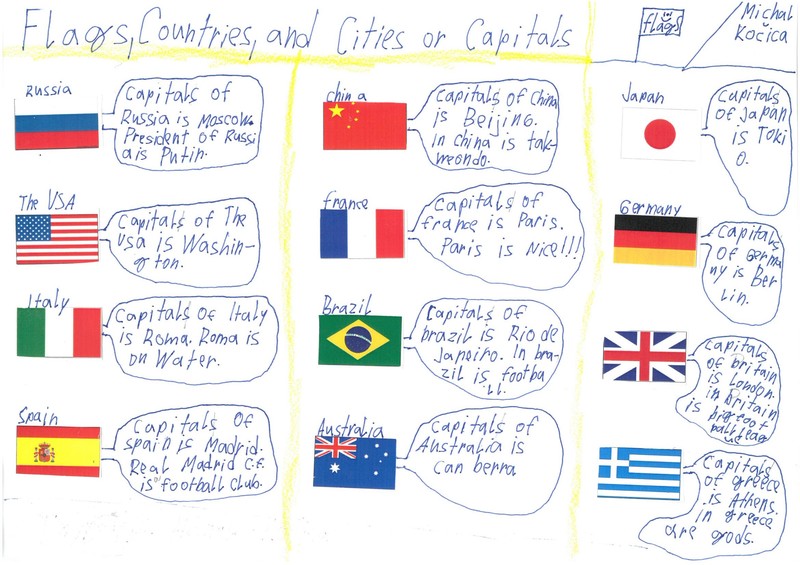 Flags, Countries, and Cities or Capitals
flags
Michal
Kočica
Russia
Capitals of
Russia is Moscow.
President of Russi
a is Putin.
The USA
Capitals of The
Usa is Washin-
gton.
Italy
Capitals of Italy
is Roma. Roma is
on Water.
Spain
Capitals of
Spain is Madrid.
Real Madrid C.F.
is football club.
China
Capitals of China
is Beijing.
In China is tak-
weondo.
france
Capitals of
france is Paris.
Paris is Nice!!!
Brazil
Capitals of
brazil is Rio de
Janeiro. In bra-
zil is footba
ll.
Australia
Capitals of
Australia is
Can berra
Japan
Capitals
of Japan
is Toki
o.
Germany
Capitals
of Germa
ny is Ber
lin.
Capitals
of britain
is London.
in britain
is big foot
ball leag
ue
Capitals
of greece
is Athens.
In greece
are gods.